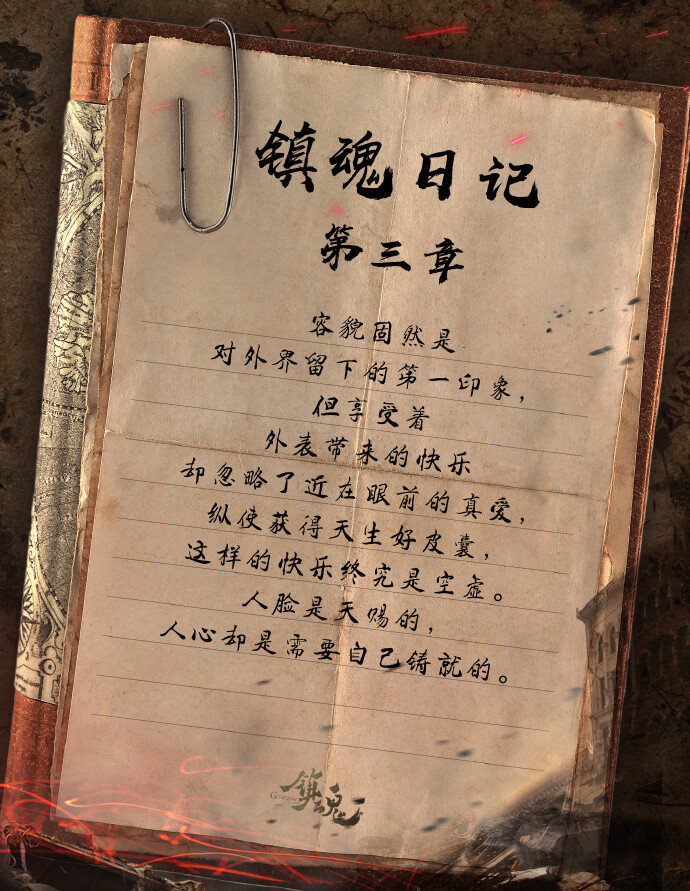 镇魂日记
第三章
容貌固然是
对外界留下的第一印象，
但享受着
外表带来的快乐
却忽略了近在眼前的真爱，
纵使获得天生好皮囊，
这样的快乐终究是空虚。
人脸是天赐的，
人心却是需要自己铸就的。
镇魂